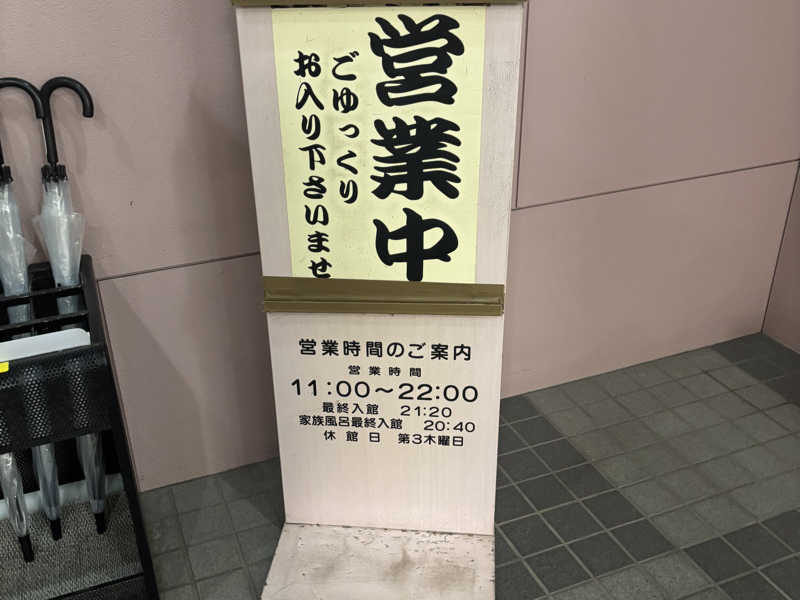 営業中
ごゆっくり
お入り下さいませ
営業時間のご案内
営業時間
11:00〜22:00
最終入館 21:20
家族風呂最終入館 20:40
休館日 第3木曜日